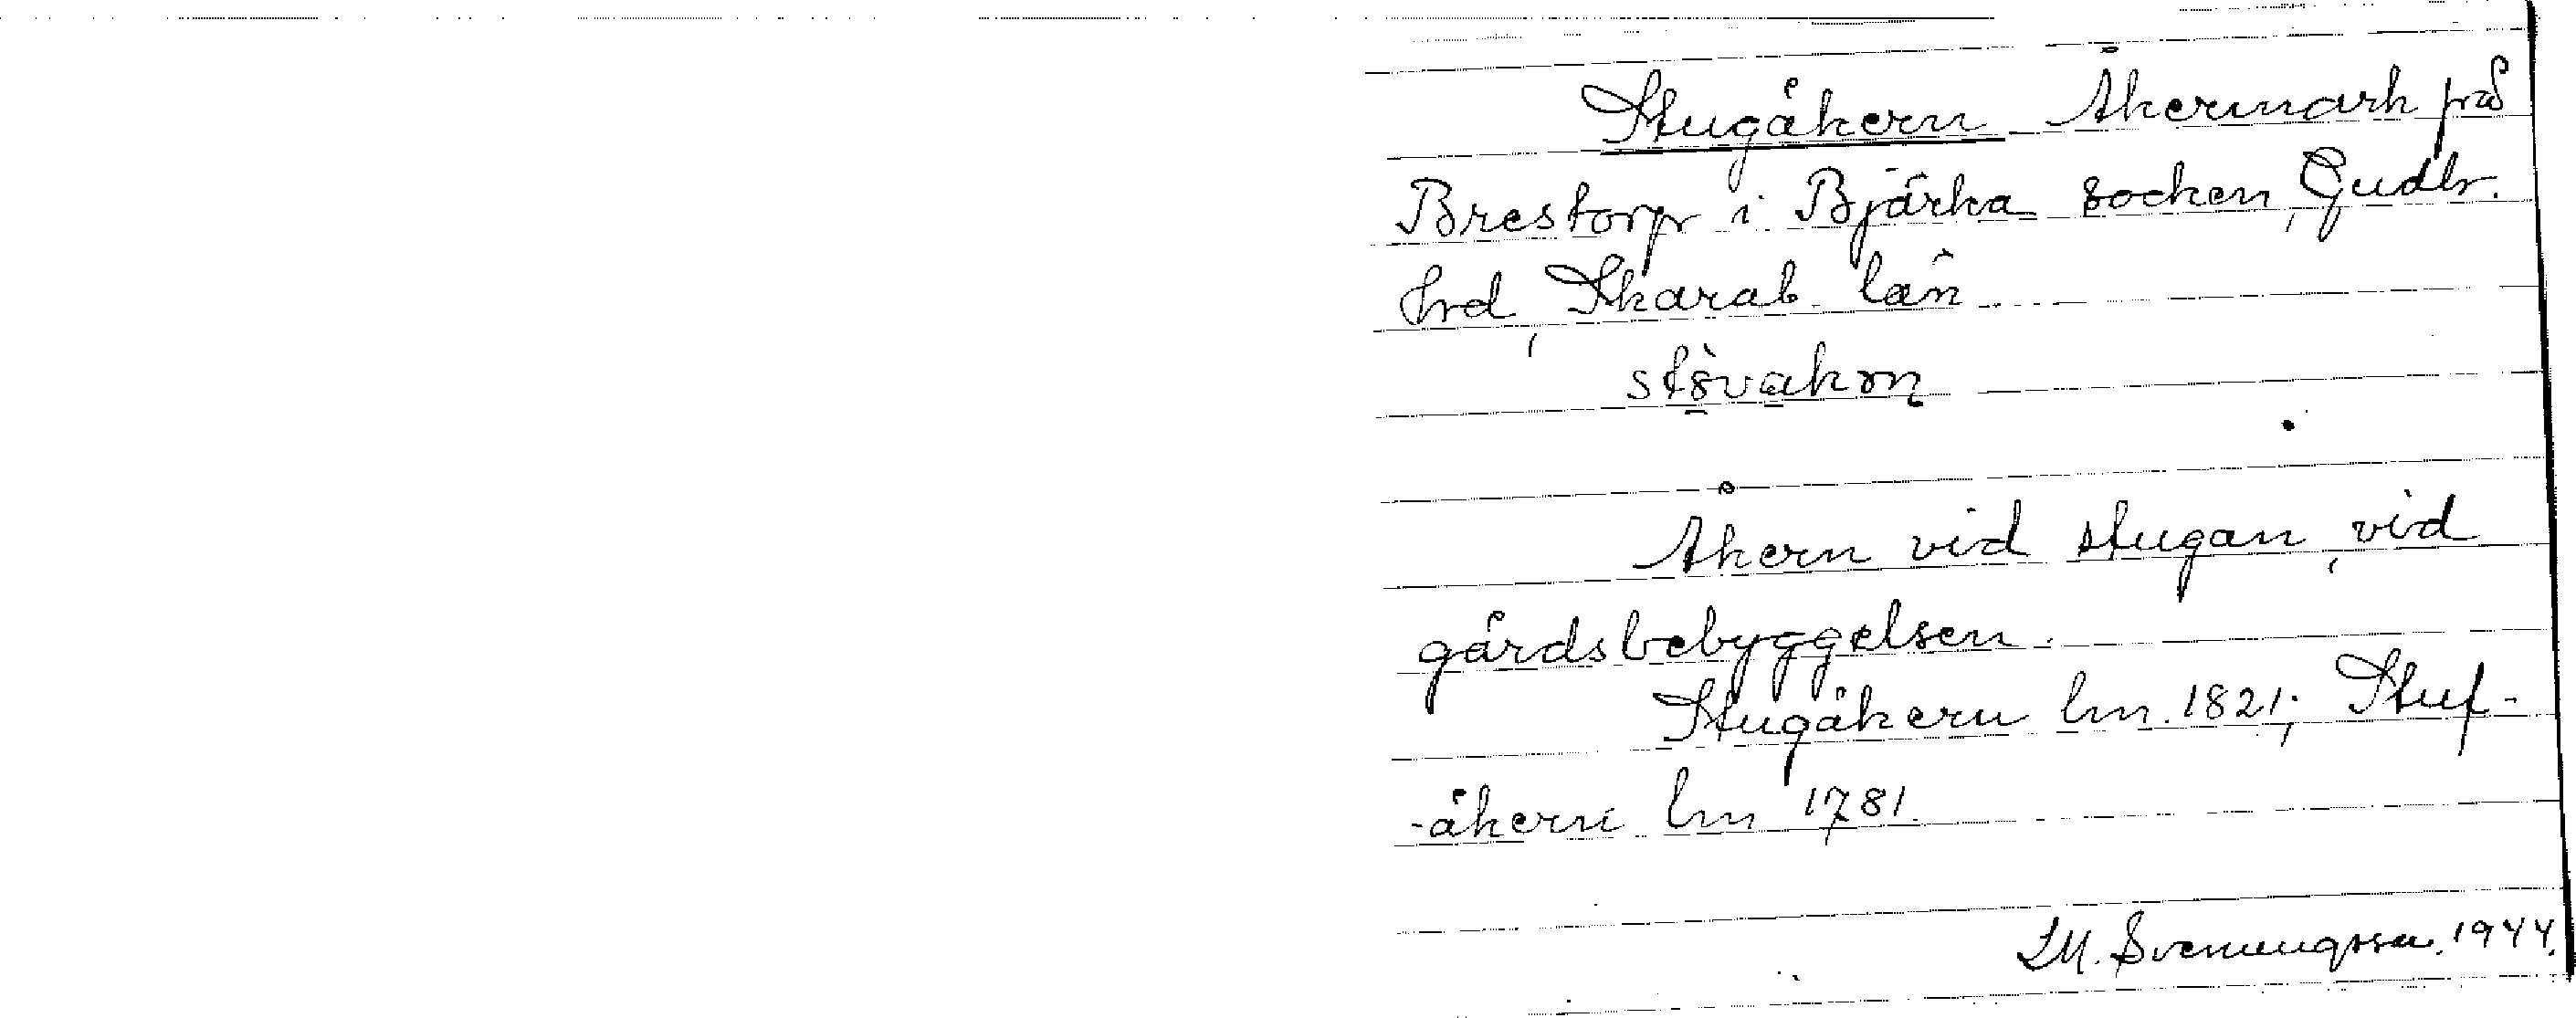 Stugåkern Åkermark på
Brestorp i Bjärka socken, Gudh.
hrd, Skarab. län
Åkern vid stugan, vid
gårdsbebyggelsen.
Stugåkern lm. 1821; Stuf-
-åkern lm 1781.
LM. Svenungsson. 1944.